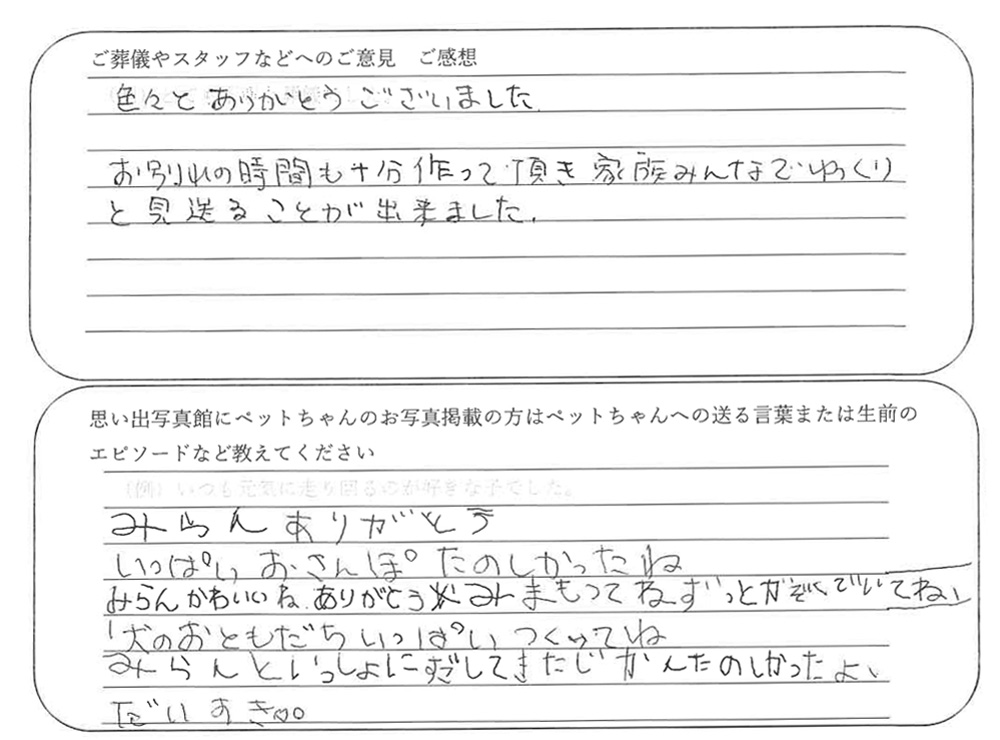 ご葬儀やスタッフなどへのご意見　ご感想
色々と ありがとう ございました.
お別れの時間も十分作って頂き 家族みんなでゆっくり
と見送ることが出来ました.
思い出写真館にペットちゃんのお写真掲載の方はペットちゃんへの送る言葉または生前の
エピソードなど教えてください
（例）いつも元気に走り回るのが好きな子でした。
みらん ありがとう
いっぱい おさんぽ たのしかったね
みらんかわいいね.ありがとう みまもってねずっとかぞくでいてね、
犬のおともだち いっぱい つくってね
みらんといっしょにすごしてきたじかんたのしかったよ、
だいすき♡♡